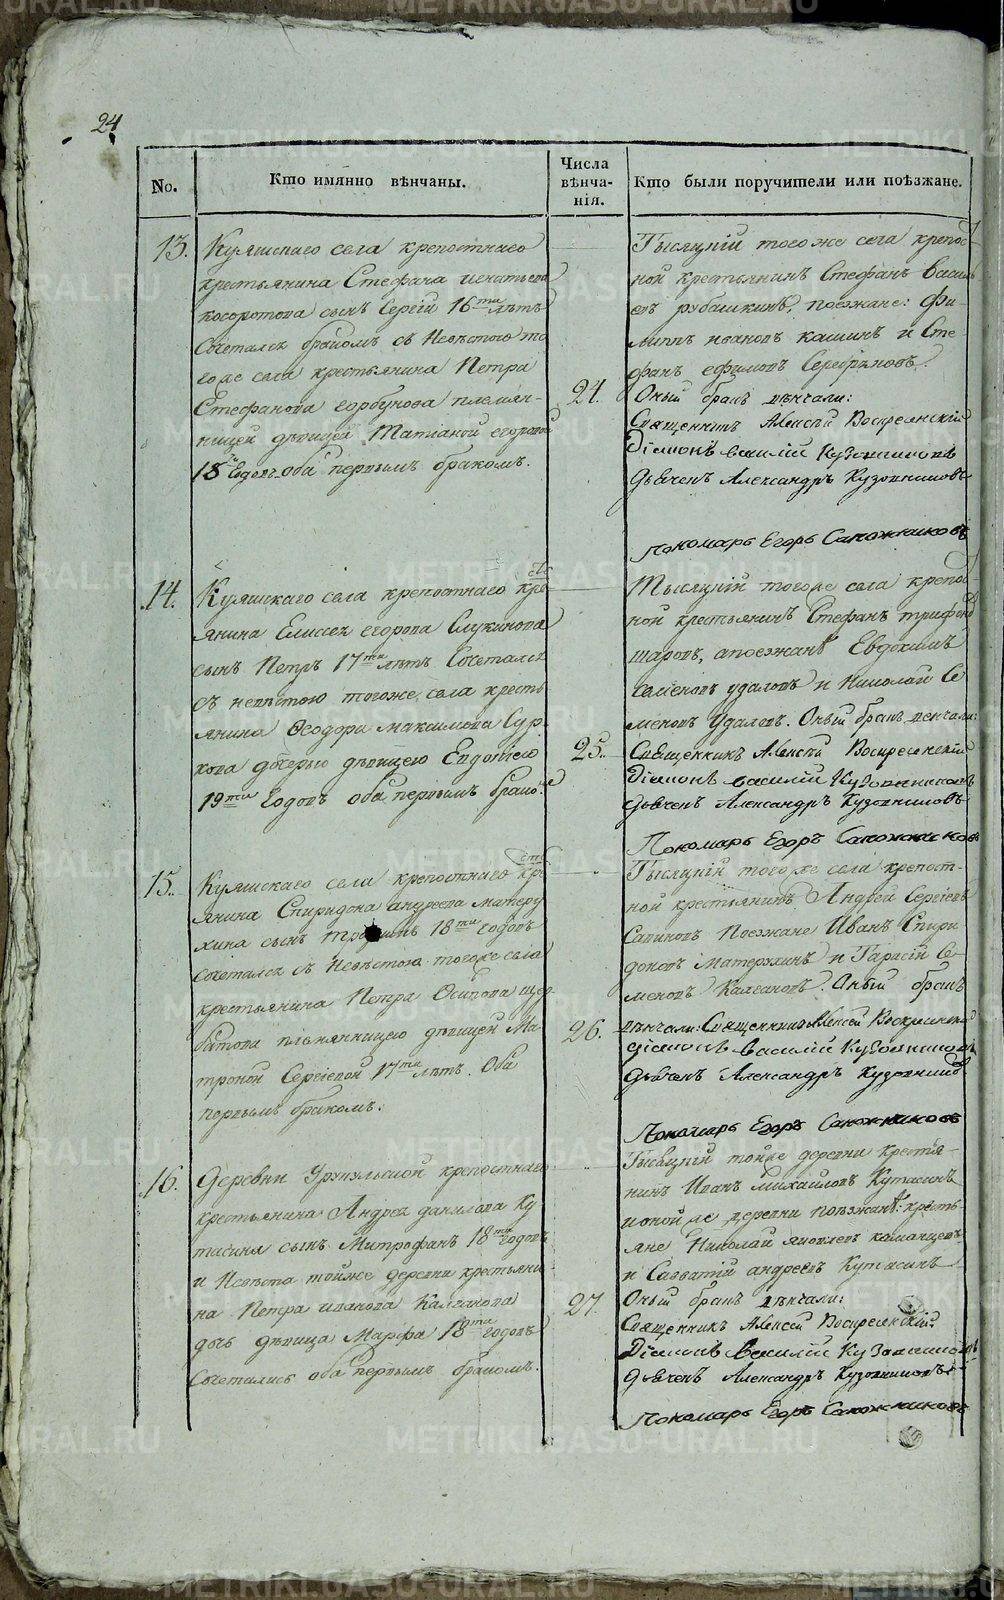 24
No.
Кто имянно вѣнчаны.
Числа
вѣнча-
нія.
Кто были поручители или поѣзжане.
13.
Куяшскаго села крепостнаго
крестьянина Стефана игнатьева
косоротова сынъ Сергій 16ти лѣтъ
Сочетался бракомъ съ Невѣстою то
гоже села крестьянина Петра
Стефанова горбунова племян-
ницей дѣвицей Татіаной егоровой
18 Годовъ оба первымъ бракомъ.
24.
Тысяцкій того же села крепос
ной крестьянинъ Стефанъ Васил
евъ рубашкинъ, поезжане: Фи-
липпъ ивановъ кашинъ и Сте
фанъ ефимовъ Серебряновъ.
Оный бракъ вѣнчали:
Священникъ Алексѣй Воскресенскій
Діаконъ василій Кузовниковъ
Дьячекъ Александръ Кузовниковъ
Пономарь Егоръ Сапожниковъ
14.
Куяшскаго села крепостнаго кре
стьянина Елисея егорова
сынъ Петръ 17ти лѣтъ Сочетался
съ невѣстою тогоже села кресть
янина Ѳеодора максимова Сур
кова дочерью дѣвицею Евдокіею
19ти Годовъ оба первымъ браком
25.
Тысяцкій тогоже села крепос
ной крестьянинъ Стефанъ трифоно
шаровъ, а поезжанѣ Евдокимъ
семеновъ удаловъ и Николай Се
меновъ Удаловъ. Оный бракъ венчали:
Священникъ Алексѣй Воскресенскій
Діаконъ василій Кузовниковъ
Дьячекъ Александръ Кузовниковъ
Пономарь Егоръ Сапожников
15.
Куяшскаго села крепостнаго кре
стьянина Спиридона андреева матеру
хина сынъ 18ти годовъ
сочетался съ Невѣстою тогоже села
крестьянина Петра Осипова щер
бакова племянницею дѣвицей Ма
троной Сергіевой 17ти лѣтъ. Оба
первымъ бракомъ.
26.
Тысяцкій того же села крепост-
ной крестьянинъ Андрей Сергіевъ
Савиновъ Поезжане Иванъ Спири
доновъ Матерухинъ и Тарасій Се-
меновъ Калгановъ. Оный бракъ
вѣнчали: Священникъ Алексѣй Воскресенский
діаконъ василій Кузовниковъ
Дьячекъ Александръ Кузовников
Пономарь Егоръ Сапожниковъ
16.
Деревни крепостнаго
крестьянина Андрея данилова Ку
тасина сынъ Митрофанъ 18ти годовъ
и Невѣста тойже деревни крестьяни
на Петра иванова Калганова
дочь дѣвица Марфа 18ти годовъ
Сочетались оба первымъ бракомъ.
27.
Тысяцкій тойже деревни крестья-
нинъ Иванъ михайловъ Кутасинъ
и оной же деревни поезжанѣ: кресть
яне Николай яковлевъ
и Савватій андреевъ Кутасинъ
Оный бракъ вѣнчали:
Священникъ Алексѣй Воскресенскій
Діаконъ василій Кузовниковъ
Дьячекъ Александръ Кузовниковъ
Пономарь Егоръ Сапожниковъ
METRIKI.GASU-URAL.RU